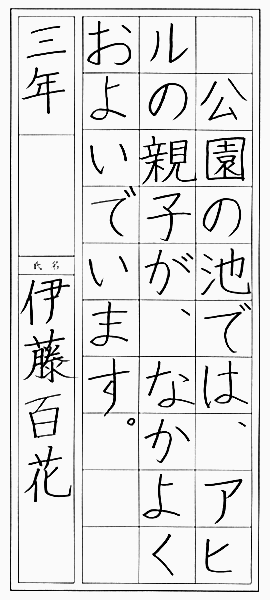 公園の池では、アヒ
ルの親子が、なかよく
およいでいます。
三年
氏名
伊藤百花